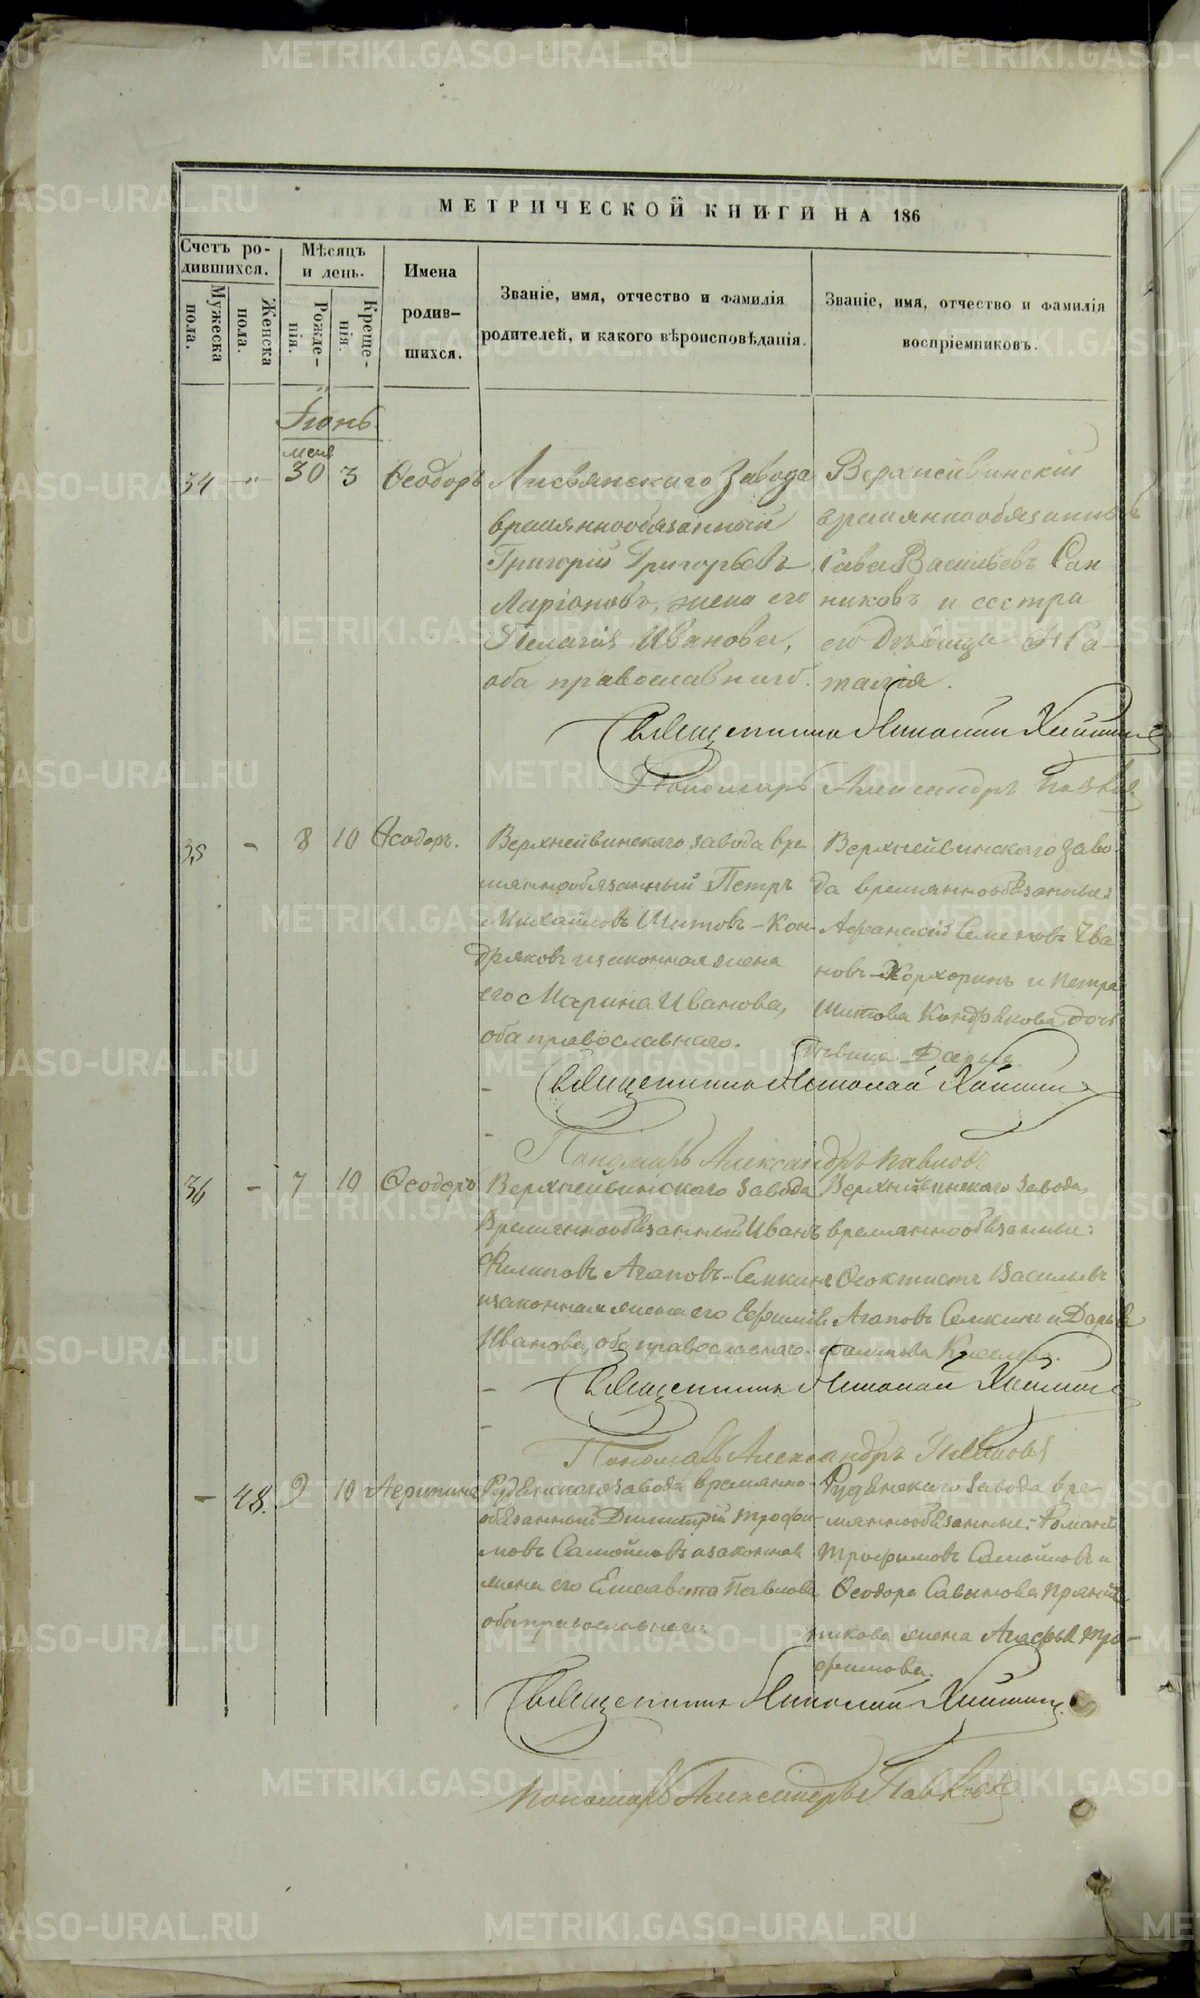 МЕТРИЧЕСКОЙ КНИГИ НА 186
Счетъ ро-
дившихся.
Мужеска
пола.
Женска
пола.
Мѣсяцъ
и день.
Рожде-
нія.
Креще-
нія.
Имена
родив-
шихся.
Званіе, имя, отчество и фамилія
родителей, и какого вѣроисповѣданія.
Званіе, имя, отчество и фамилія
воспріемниковъ.
Іюнь
мая
34 -"- 30 3 Ѳеодоръ
Завода
временнообязанный
Григорій Григорьевъ
Ларіоновъ, жена его
Пелагія Иванова,
оба православнаго.
Верхнейвинскій
временнообязанный
Сава Васильевъ Сан
никовъ и сестра
его Дѣвица На-
талія.
Священникъ Николай
Пономарь Александръ Павловъ
35 - 8 10 Ѳеодоръ.
Верхнейвинскаго завода вре
мяннообязанный Петръ
Михайловъ Шитовъ-Кон-
дряковъ и законная жена
его Марина Иванова,
оба православнаго.
Верхнейвинскаго заво-
да времяннообязанные:
Афанасій Семеновъ Ива
новъ и Петра
Шитова Кондрякова дочь
дѣвица Дарья
Священникъ Николай
Пономарь Александръ Павловъ
36 - 7 10 Ѳеодоръ
Верхнейвинскаго завода
Времяннообязанный Иванъ
Филиповъ Агаповъ-Семкинъ
и законная жена его Ефимія
Иванова, оба православнаго.
Верхнейвинскаго завода,
времяннообязанные:
Ѳеоктистъ Васильевъ
Агаповъ Семкинъ и Дарья
Филипова Киселева.
Священникъ Николай
Пономарь Александръ Павловъ
- 48. 9 10 Агрипина
Рудянскаго завода времянно-
обязанный Димитрій Трофи-
мовъ Самойловъ и законная
жена его Елисавета Павлова
оба православнаго.
Рудянскаго завода вре-
мяннообязанные: Романъ
Трофимовъ Самойловъ и
Ѳеодора Савинова Пряниш
никова жена Агафья Тро-
фимова.
Священникъ Николай
Пономарь Александръ Павловъ
METRIKI.GASO-URAL.RU